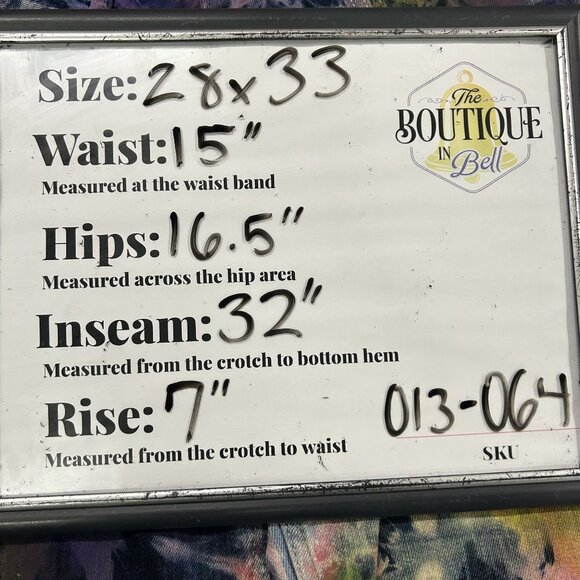 Size: 28x33
The
BOUTIQUE
IN
Bell
Waist: 15"
Measured at the waist band
Hips: 16.5"
Measured across the hip area
Inseam: 32"
Measured from the crotch to bottom hem
Rise: 7"
Measured from the crotch to waist
013-064
SKU